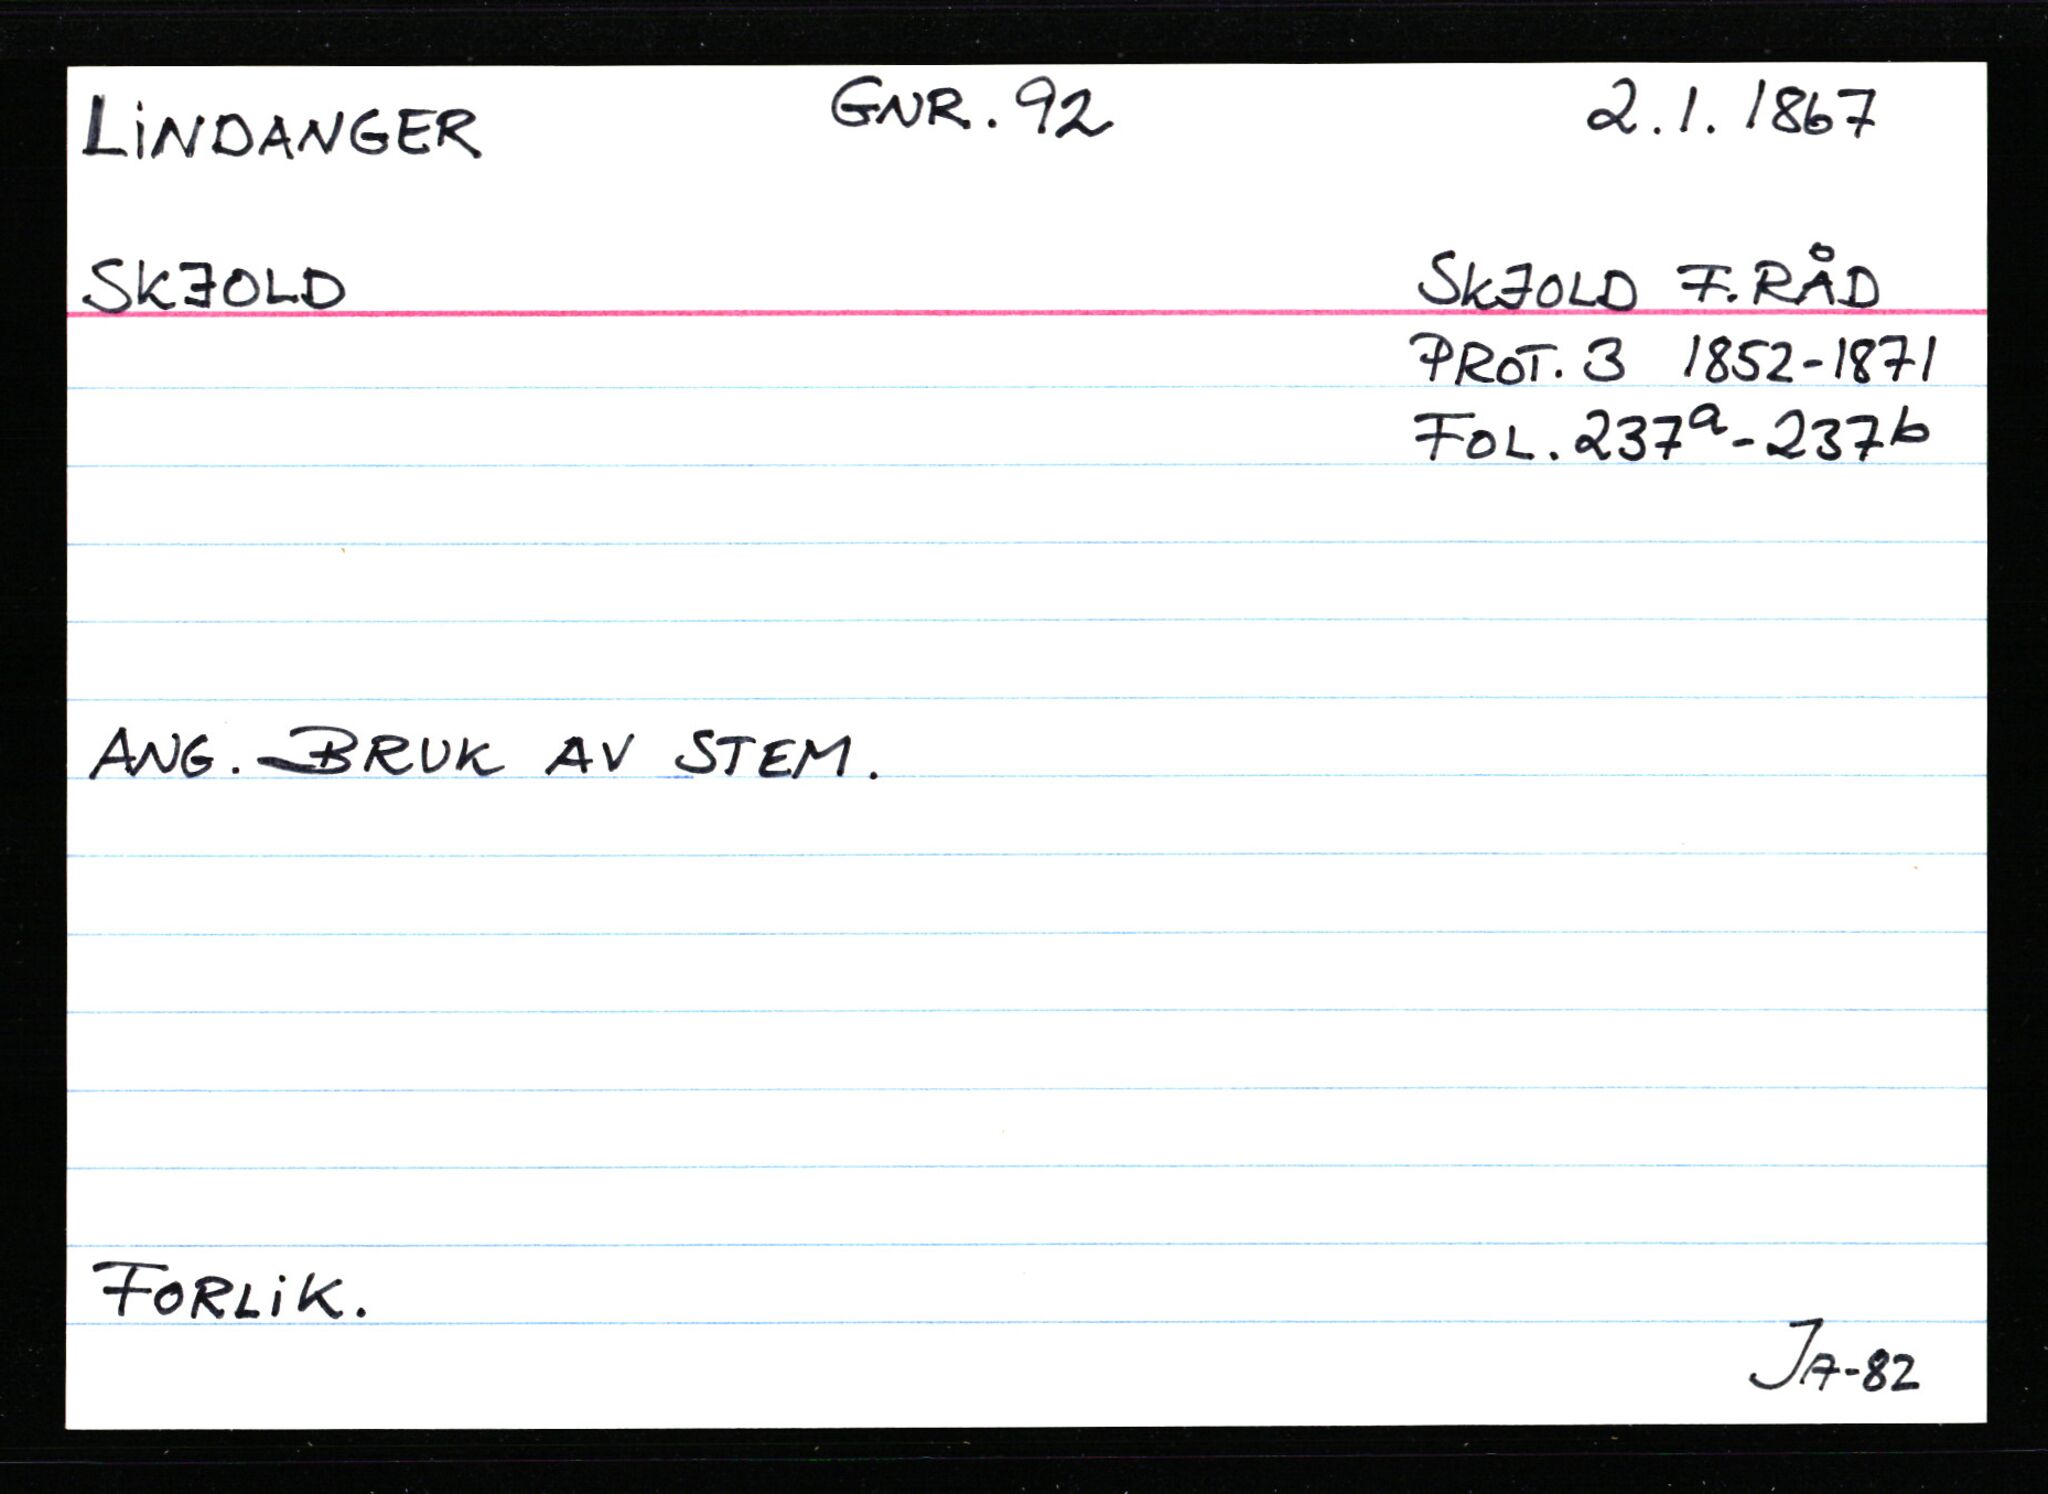 LINDANGER GNR. 92 2.1.1867
SKJOLD SKJOLD F.RÅD
PROT. 3 1852-1871
FOL. 237a-237b
ANG. BRUK AV STEM.
FORLIK.
JA-82